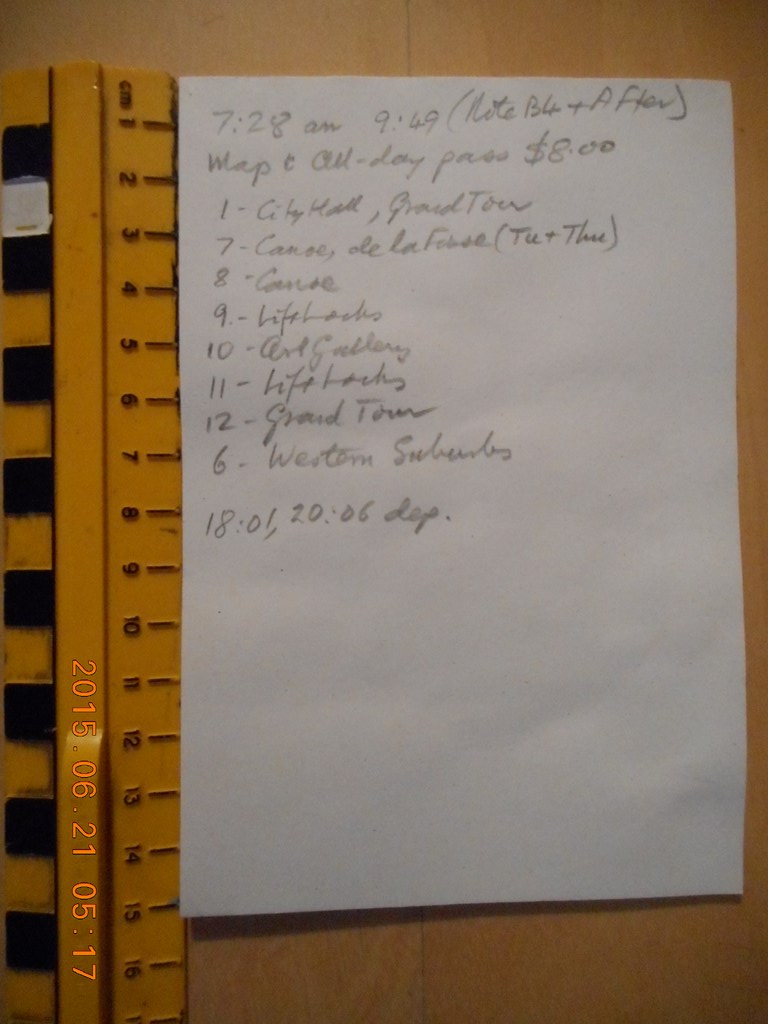 7:28 am 9:49 (Note B4 + After)
Map & All-day pass $8.00
1 - City Hall, Grand Tour
7 - Canoe, de la Fosse (Tu + Thu)
8 - Canoe
9 - Lift Locks
10 - Art Gallery
11 - Lift Locks
12 - Grand Tour
6 - Western Suburbs
18:01, 20:06 dep.
cm 1 2 3 4 5 6 7 8 9 10 11 12 13 14 15 16
2015.06.21 05:17